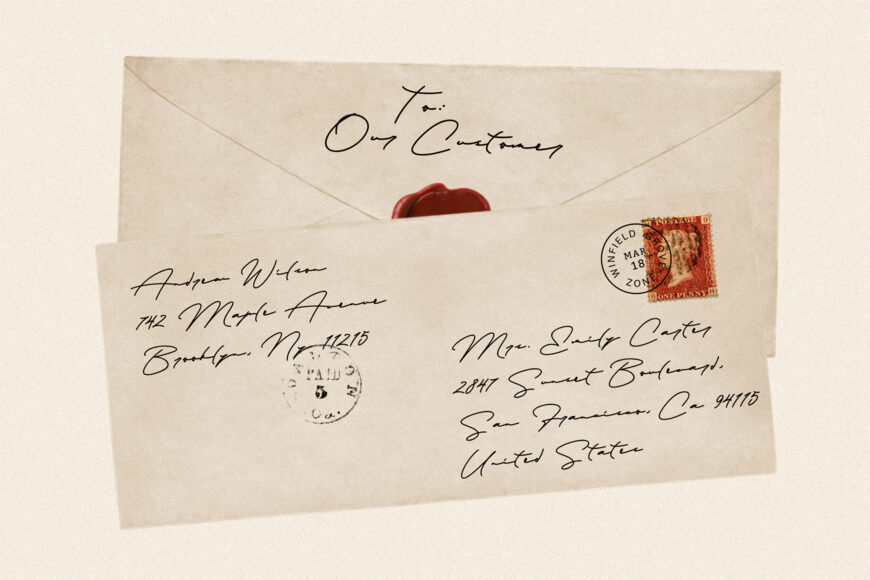 To:
Our Customer
WINFIELD GROVE
MAR
18
ZONE
POSTAGE
B
ONE PENNY
Andrew Wilson
742 Maple Avenue
Brooklyn, Ny 11215
PAID
5
Ga.
Mrs. Emily Carter
2847 Sunset Boulevard,
San Francisco, Ca 94115
United States